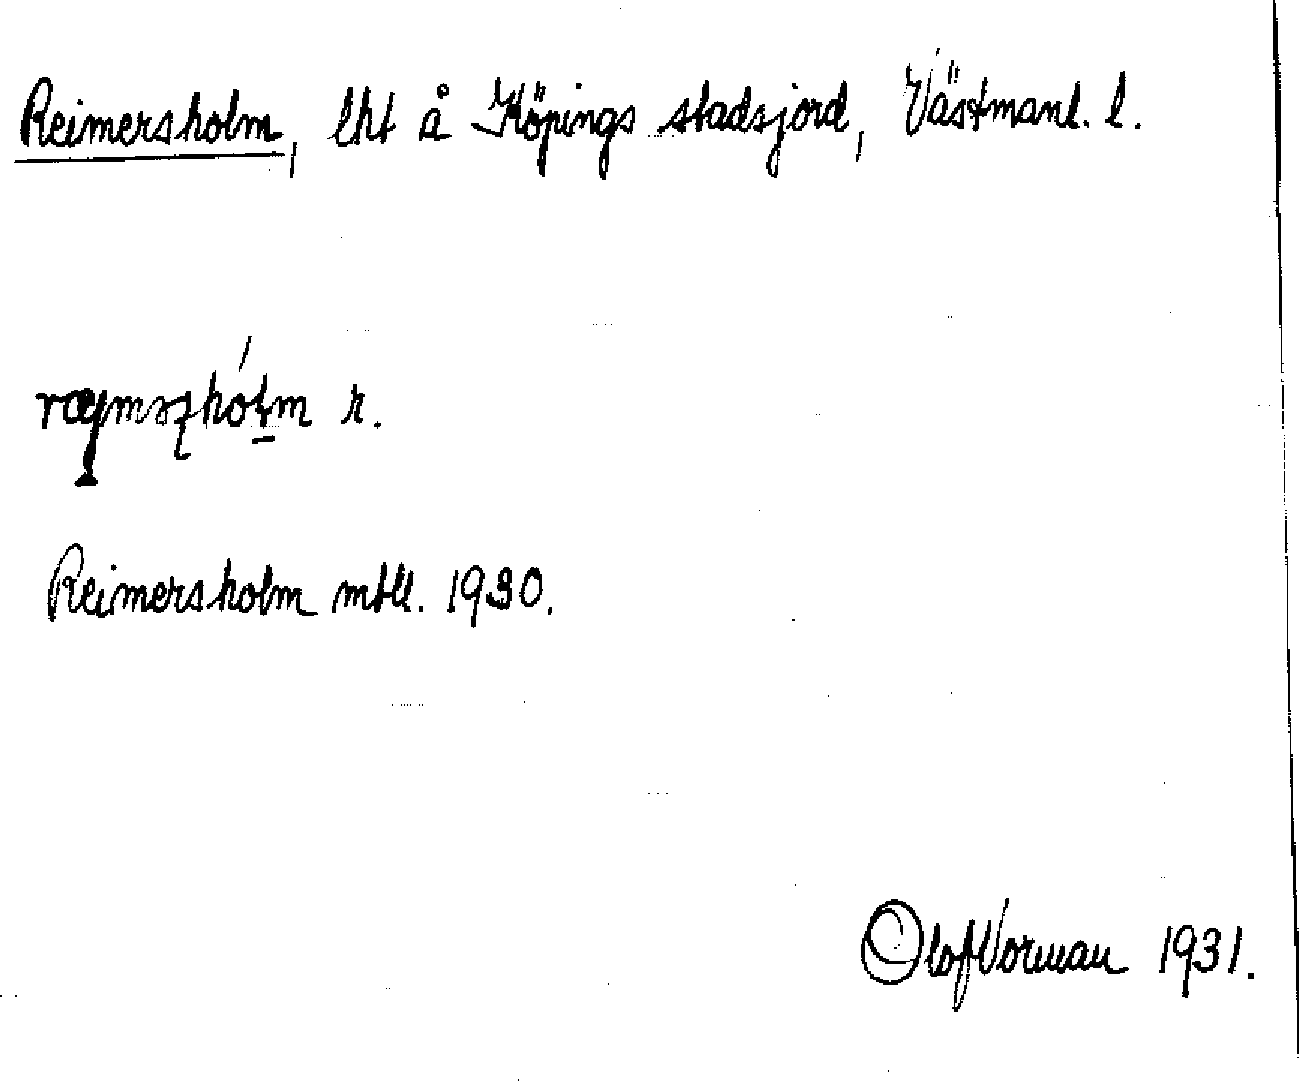 Reimersholm, lht å Köpings stadsjord, Västmanl. l.
r.
Reimersholm mtll. 1930.
Olof Vorman 1931.